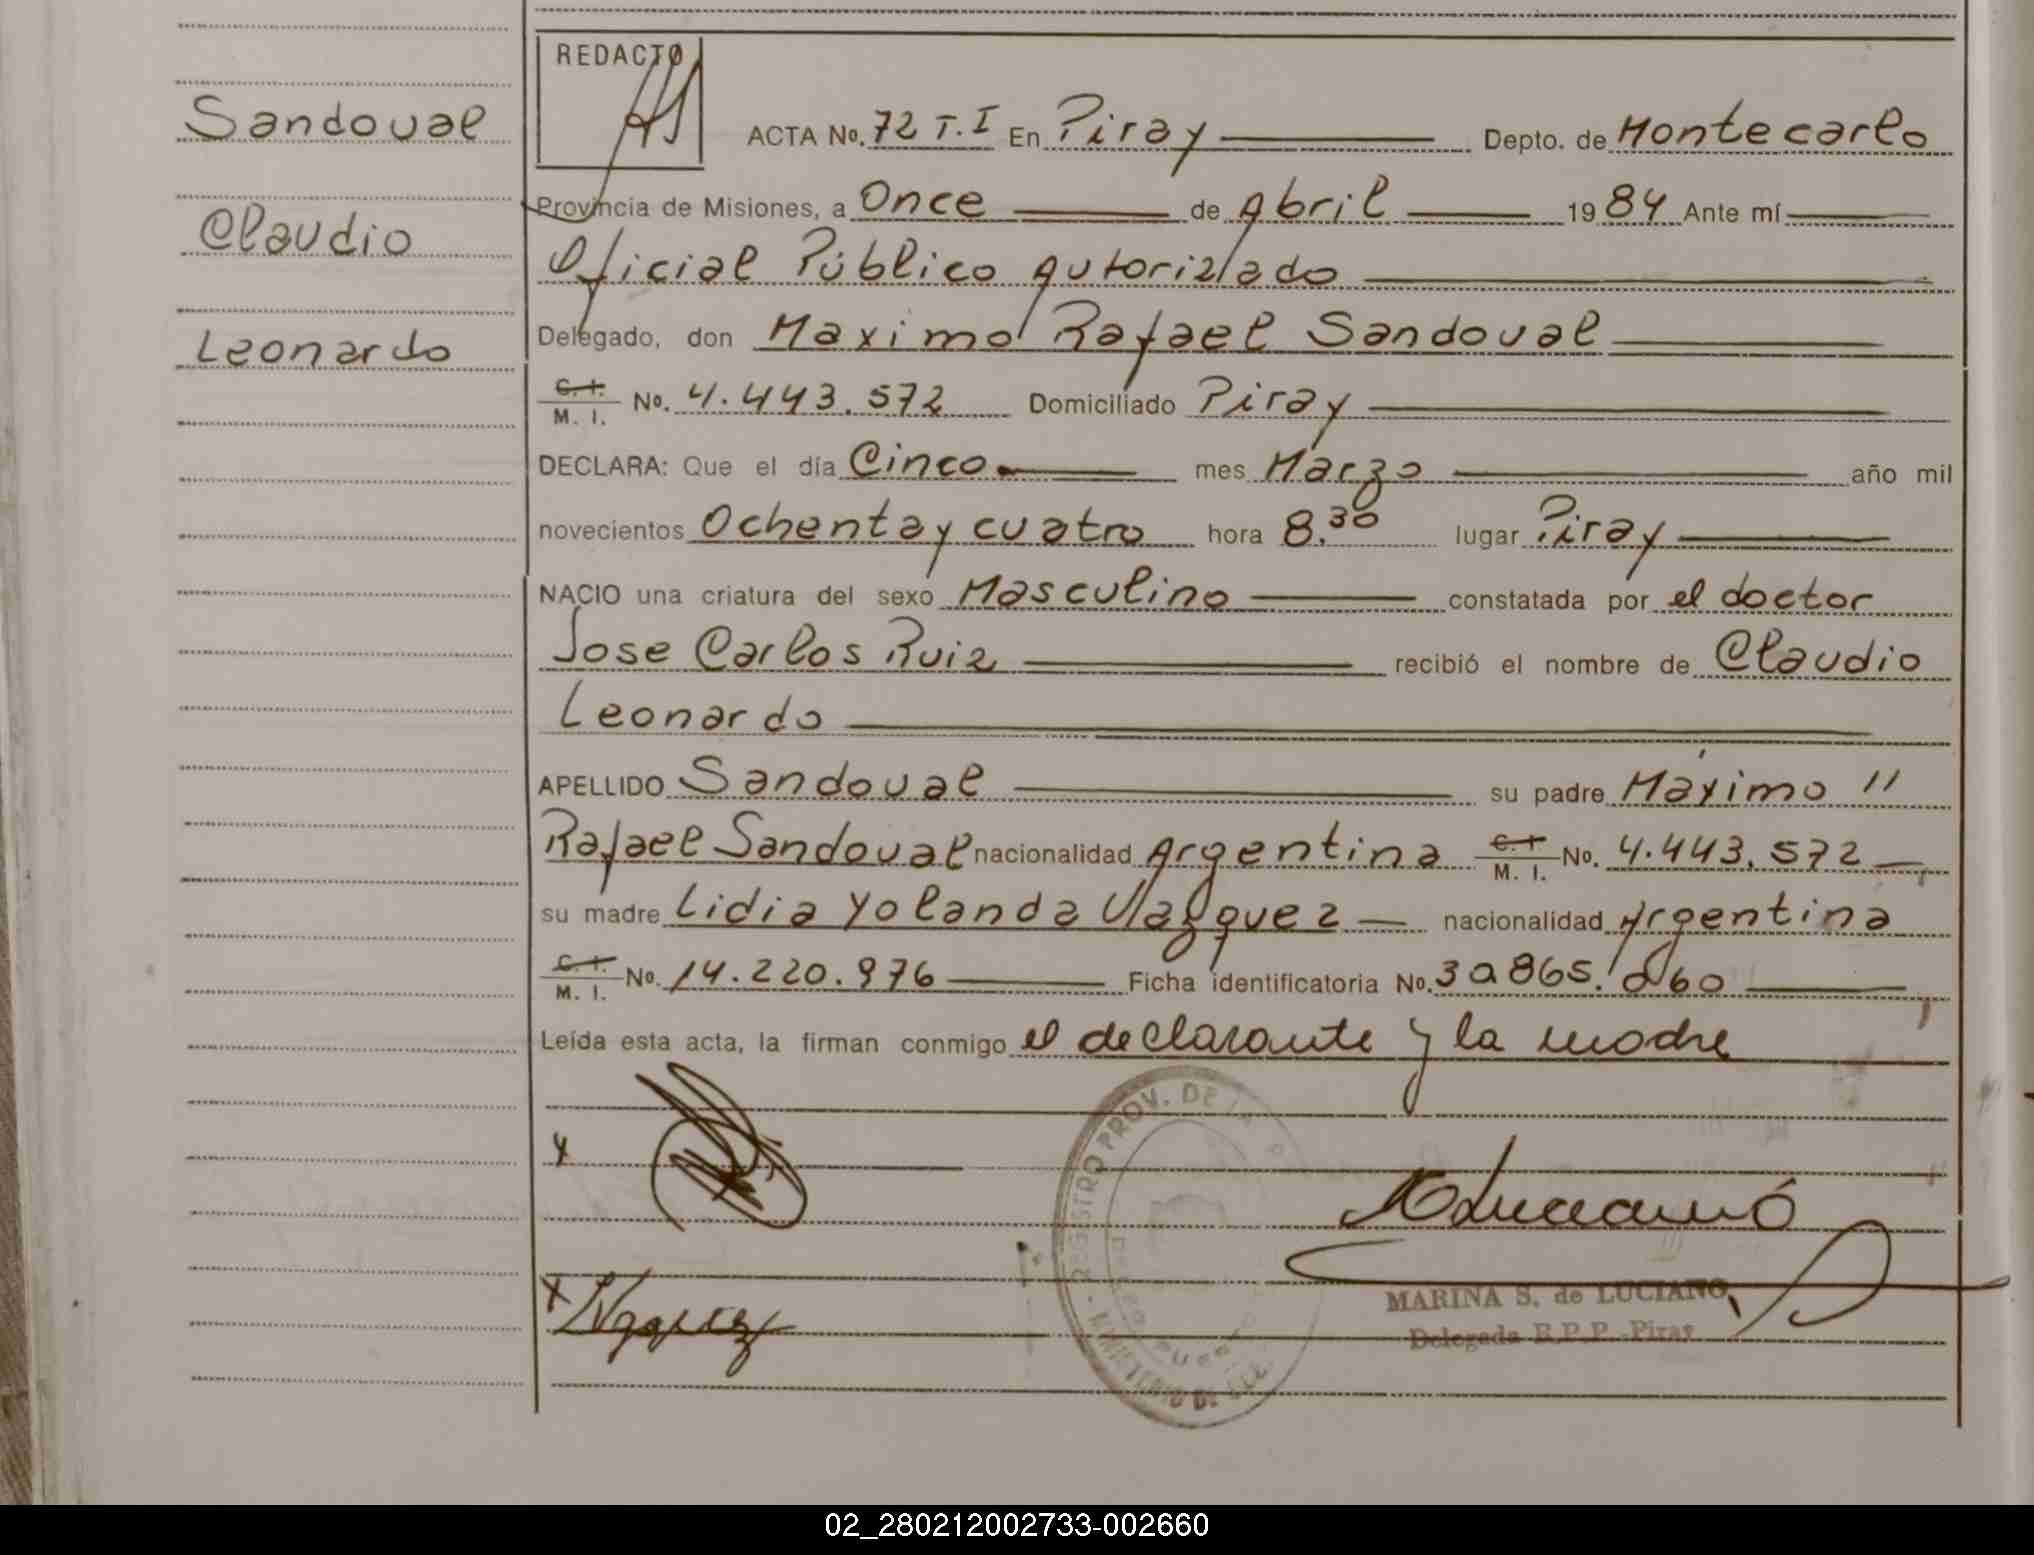 Sandoval
Claudio
Leonardo
REDACTO
ACTA No. 72 T.I En Piray Depto. de Montecarlo
Provincia de Misiones, a Once de Abril 1984 Ante mí
Oficial Público Autorizado
Delegado, don Maximo Rafael Sandoval
C. I. M. I. No. 4.443.572 Domiciliado Piray
DECLARA: Que el día Cinco mes Marzo año mil
novecientos Ochenta y cuatro hora 8.30 lugar Piray
NACIO una criatura del sexo Masculino constatada por el doctor
Jose Carlos Ruiz recibió el nombre de Claudio
Leonardo
APELLIDO Sandoval su padre Máximo "
Rafael Sandoval nacionalidad Argentina C. I. M. I. No. 4.443.572
su madre Lidia Yolanda Vazquez nacionalidad Argentina
C. I. M. I. No. 14.220.976 Ficha identificatoria No. 30865.060
Leída esta acta, la firman conmigo el declarante y la madre
REGISTRO PROV. DE LA
MINISTERIO DE
MARINA S. de LUCIANO
Delegada R.P.P. Piray
02_280212002733-002660